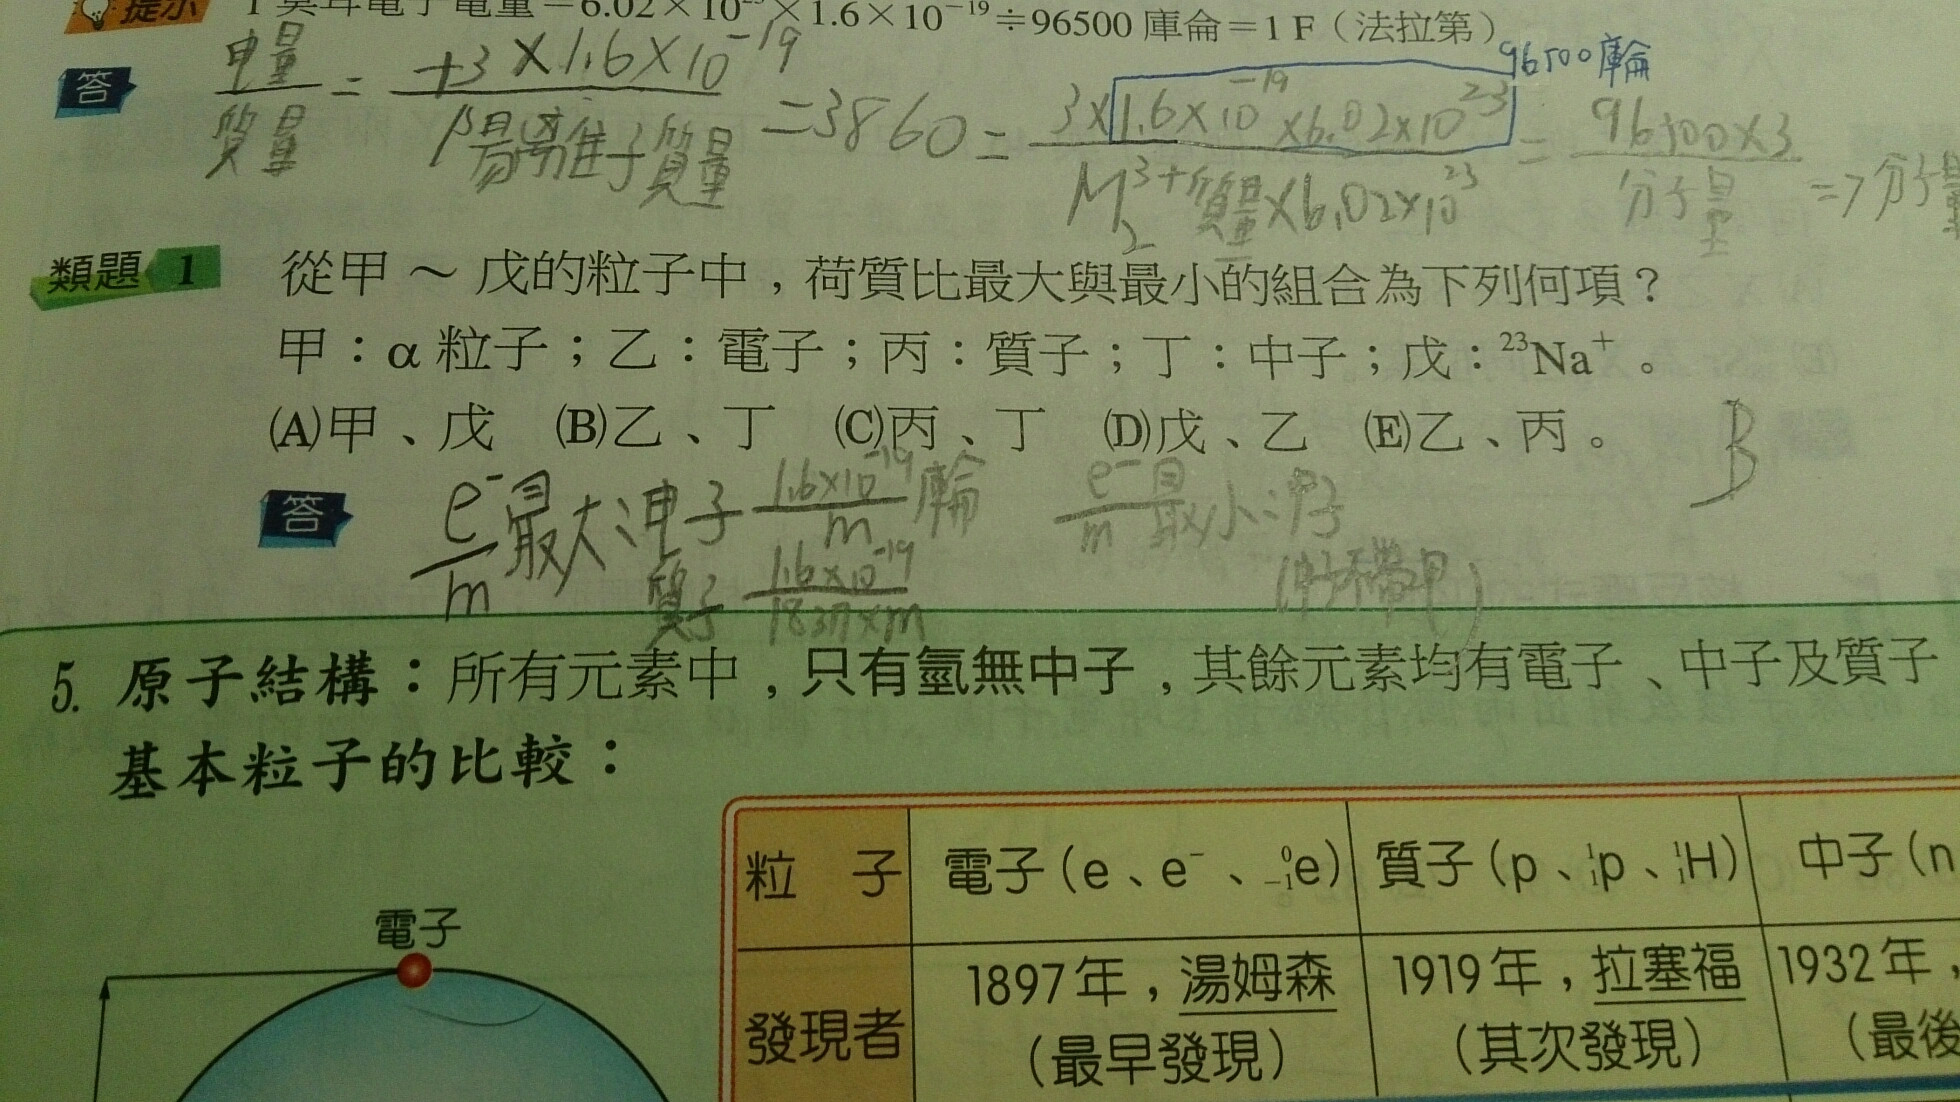 提示 1莫耳電子電量=6.02×10²³×1.6×10⁻¹⁹÷96500庫侖=1 F(法拉第)
96500庫輪
答 电量/質量 = +3×1.6×10⁻¹⁹/陽離子質量 =3860= 3×1.6×10⁻¹⁹×6.02×10²³/M³⁺質量×6.02×10²³ = 96500×3/分子量 =7分子量
類題1 從甲~戊的粒子中,荷質比最大與最小的組合為下列何項?
甲:α粒子;乙:電子;丙:質子;丁:中子;戊:²³Na⁺。
(A)甲、戊 (B)乙、丁 (C)丙、丁 (D)戊、乙 (E)乙、丙。
B
答 e⁻/m 最大:电子 1.6×10⁻¹⁹/m 庫輪 e⁻/m 最小:中子
質子 1.6×10⁻¹⁹/1837×m (中子不帶电)
5. 原子結構:所有元素中,只有氫無中子,其餘元素均有電子、中子及質子
基本粒子的比較:
粒 子 電子(e、e⁻、⁰₋₁e) 質子(p、¹₁p、¹₁H) 中子(n
電子
發現者 1897年,湯姆森 1919年,拉塞福 1932年,
(最早發現) (其次發現) (最後